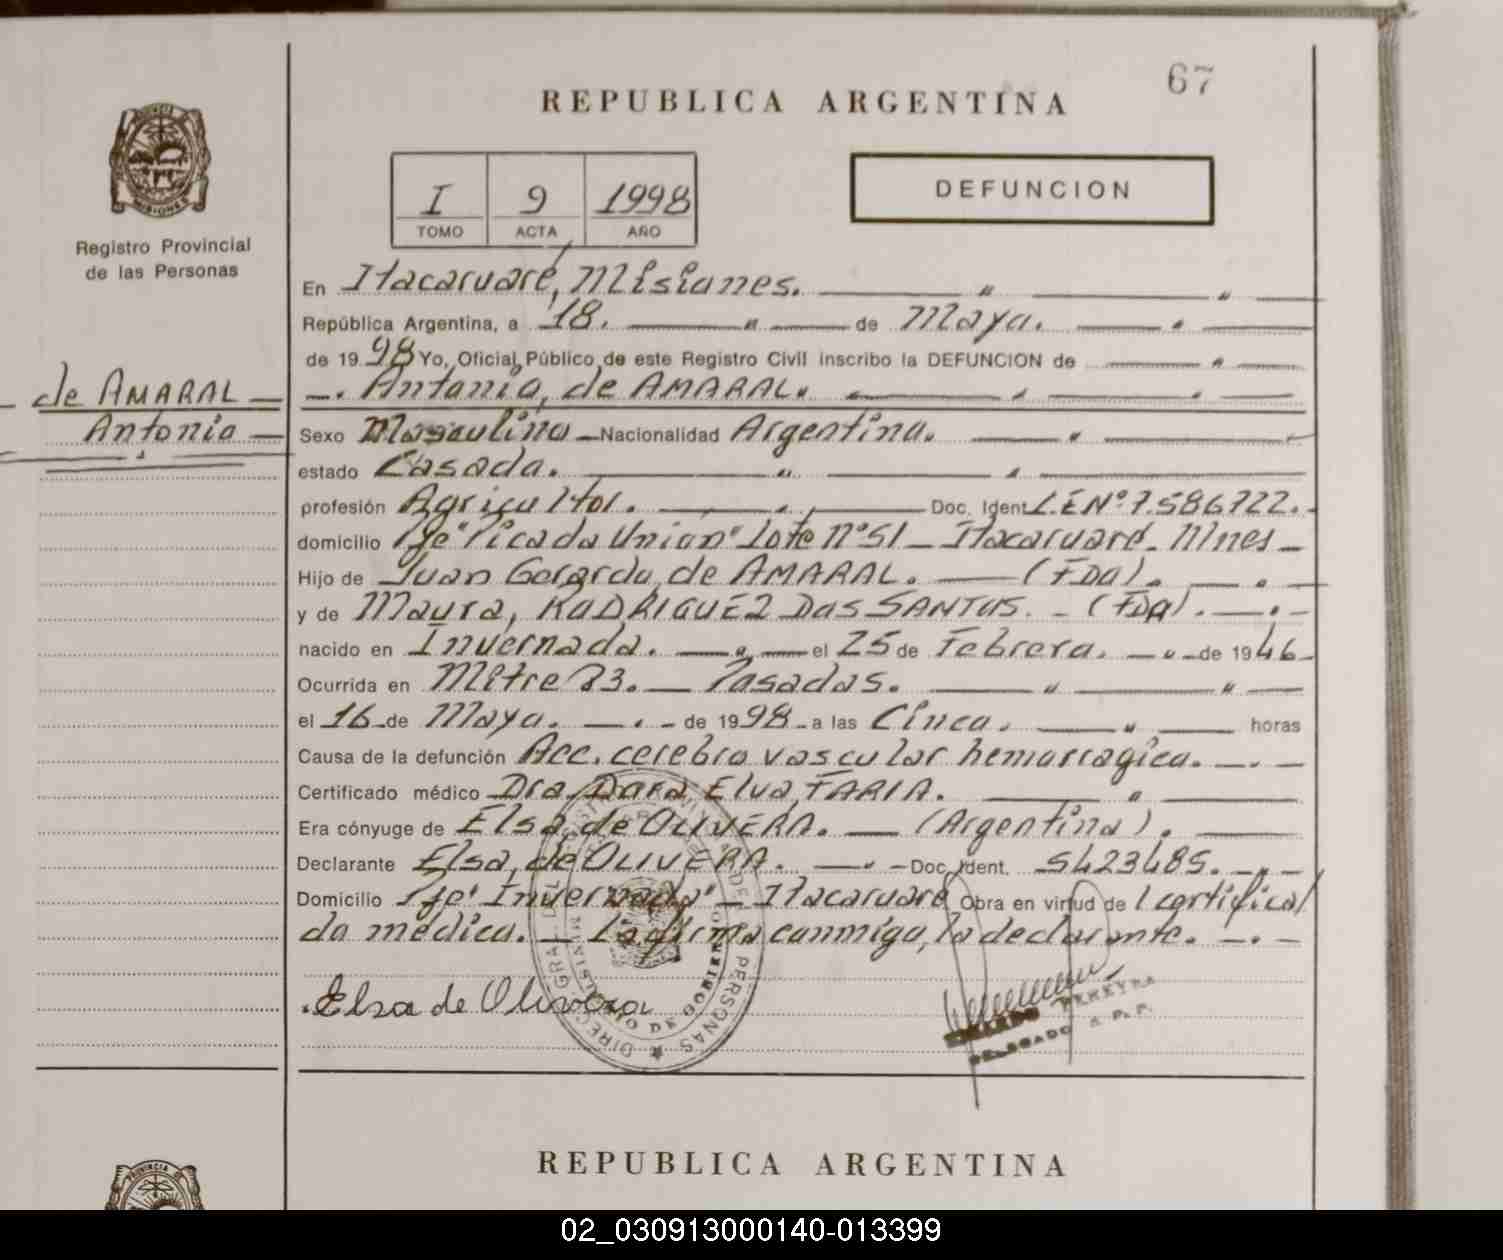 67
REPUBLICA ARGENTINA
I 9 1998
TOMO ACTA AÑO
DEFUNCION
PROVINCIA DE
MISIONES
Registro Provincial
de las Personas
de AMARAL
Antonio
En Itacaruaré, Misiones.
República Argentina, a 18. de Mayo.
de 1998 Yo, Oficial Público de este Registro Civil inscribo la DEFUNCION de
Antonio, de AMARAL.
Sexo Masculino Nacionalidad Argentina.
estado Casado.
profesión Agricultor. Doc. Ident L.E.Nº 7.586722.
domicilio Pje "Picada Unión" Lote Nº 51 - Itacaruaré - Mnes -
Hijo de Juan Gerardo, de AMARAL. (FDO).
y de Maura, RODRIGUEZ DOS SANTOS. - (FDA).
nacido en Invernada. el 25 de Febrero. de 1946
Ocurrida en Mitre 73. Posadas.
el 16 de Mayo. de 1998 a las Cinco. horas
Causa de la defunción Acc. cerebro vascular hemorragico.
Certificado médico Dra. Dora Elva, FARIA.
Era cónyuge de Elsa, de OLIVERA. (Argentina).
Declarante Elsa, de OLIVERA. Doc. Ident. 5423485.
Domicilio Pje "Invernada" - Itacaruaré Obra en virtud de 1 certifica/
do médico. - La firma conmigo, la declarante.
Elsa de Olivera
PEREYRA
DELEGADO R. P. P.
DIREC. GRAL. DEL PERSONAS
MINISTERIO DE GOBIERNO
REPUBLICA ARGENTINA
PROVINCIA
02_030913000140-013399